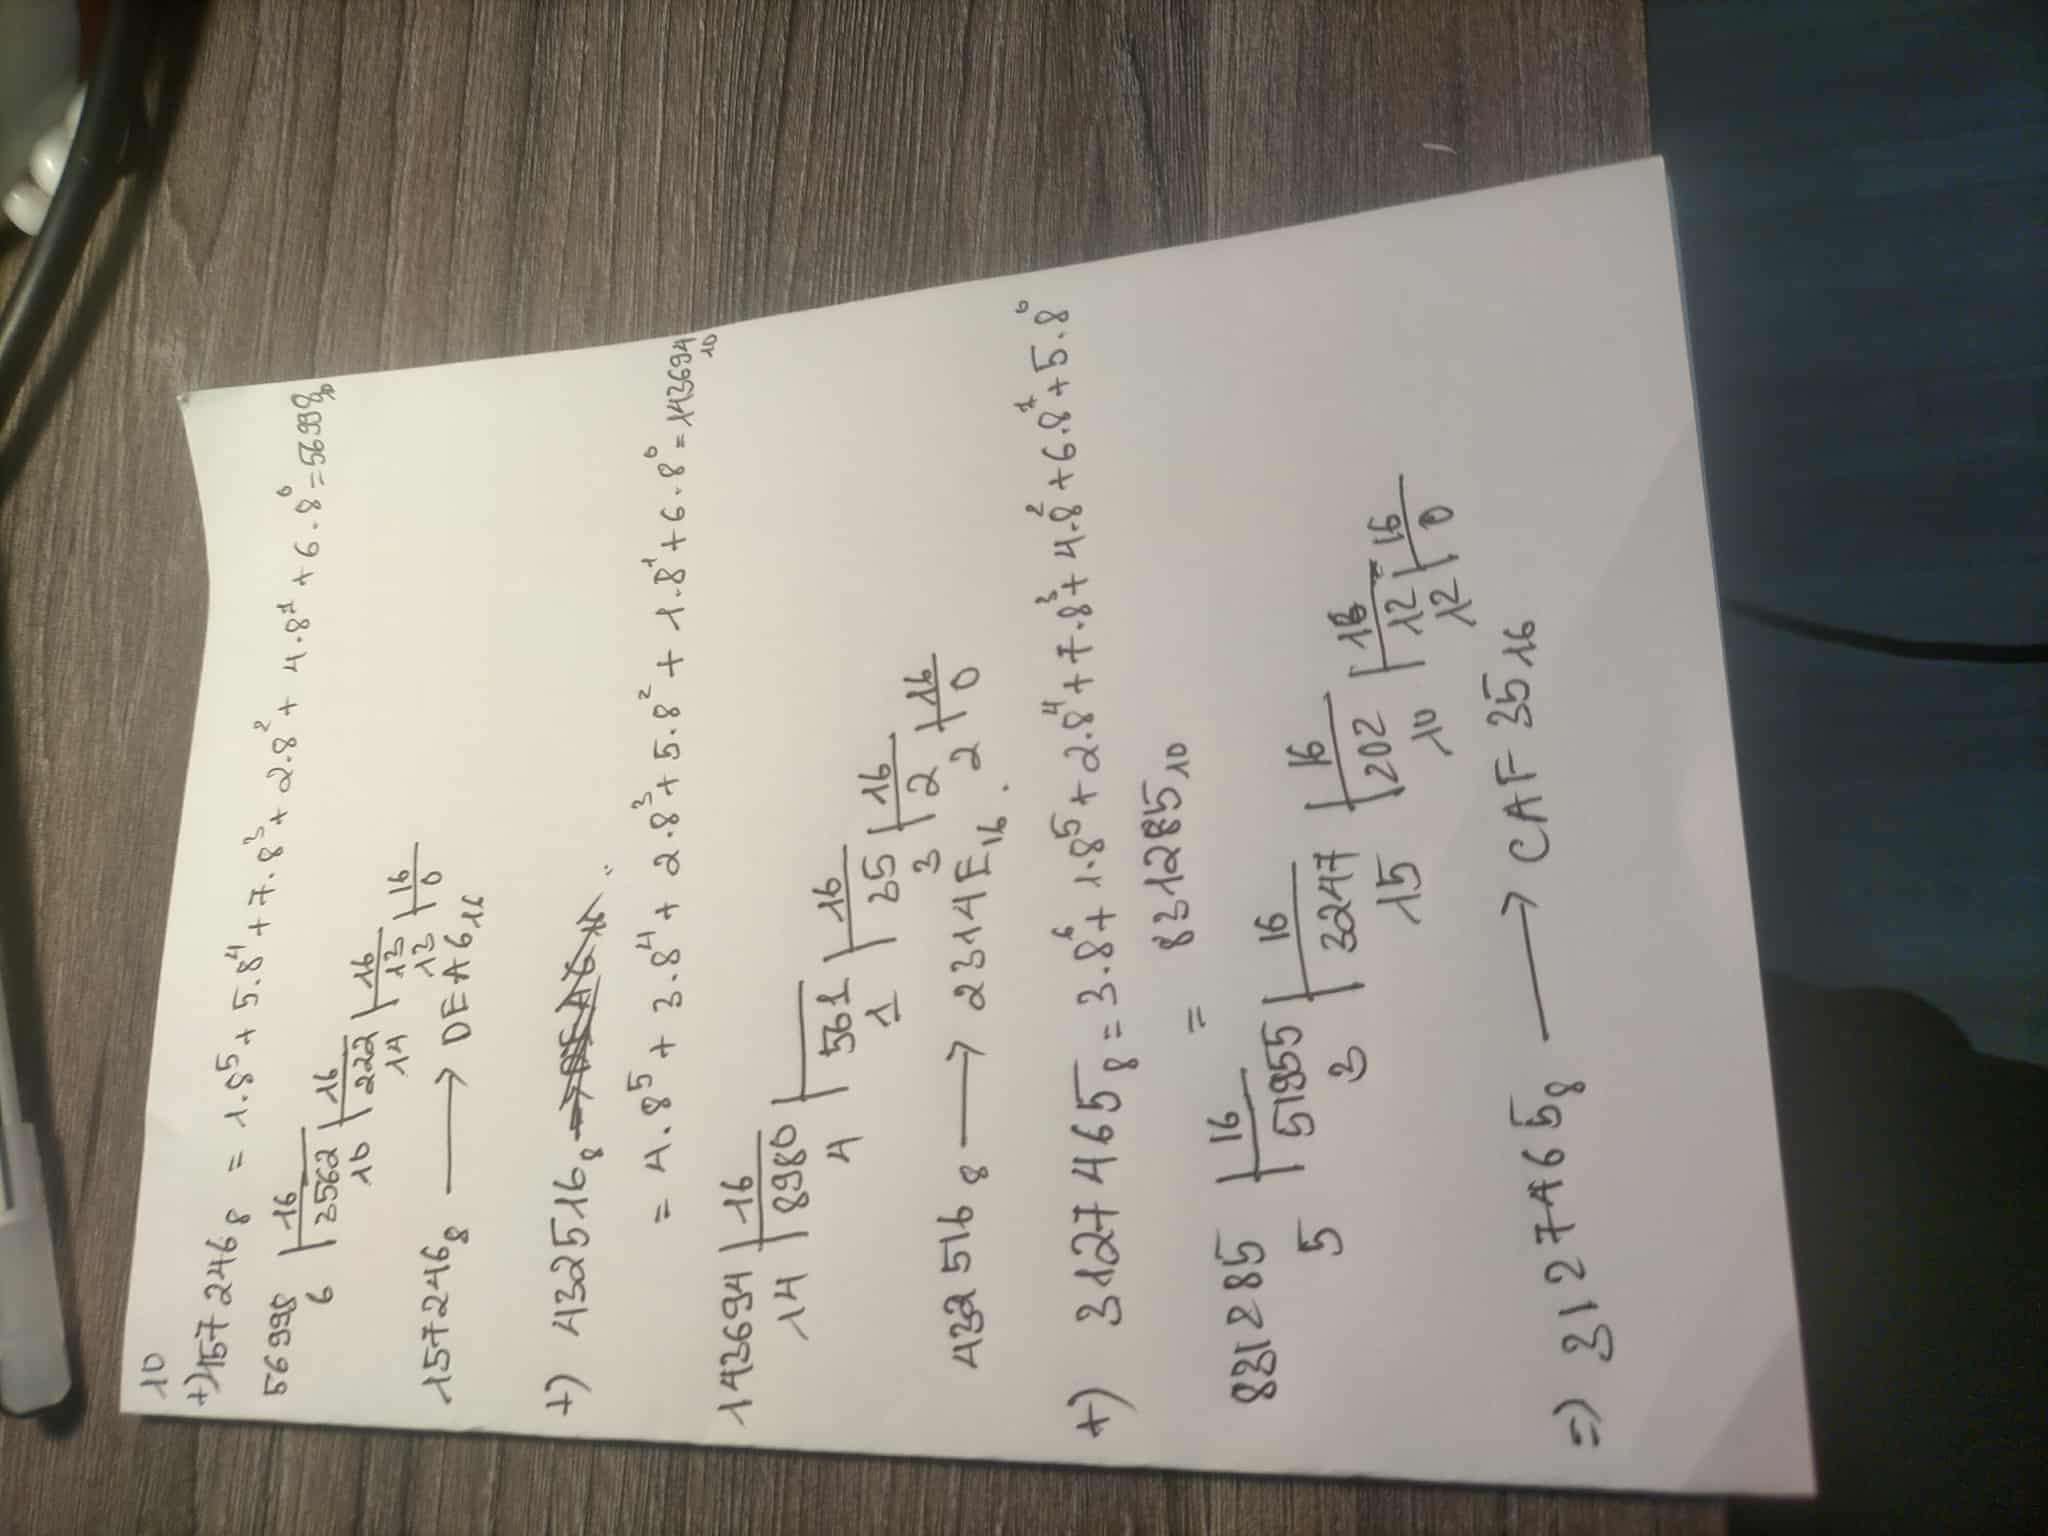 10
+) 157246₈ = 1.8⁵ + 5.8⁴ + 7.8³ + 2.8² + 4.8¹ + 6.8⁰ = 56998₁₀
56998 | 16
6 | 3562 | 16
10 | 222 | 16
14 | 13 | 16
13 | 0
157246₈ → DEA6₁₆
+) 432516₈
= 4.8⁵ + 3.8⁴ + 2.8³ + 5.8² + 1.8¹ + 6.8⁰ = 143694₁₀
143694 | 16
14 | 8980 | 16
4 | 561 | 16
1 | 35 | 16
3 | 2 | 16
2 | 0
432516₈ → 2314E₁₆.
+) 3127465₈ = 3.8⁶ + 1.8⁵ + 2.8⁴ + 7.8³ + 4.8² + 6.8¹ + 5.8⁰
= 831285₁₀
831285 | 16
5 | 51955 | 16
3 | 3247 | 16
15 | 202 | 16
10 | 12 | 16
12 | 0
=) 3127465₈ → CAF35₁₆